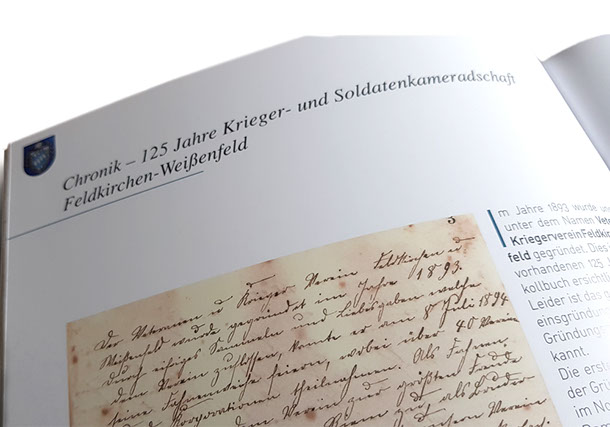 Chronik – 125 Jahre Krieger- und Soldatenkameradschaft
Feldkirchen-Weißenfeld
3
Der Veteranen u Krieger Verein Feldkirchen u
Weißenfeld wurde gegründet im Jahre 1893.
Durch eifriges Sammeln und Liebesgaben welche
dem Verein zuflossen, konnte er am 8 Juli 1894
seine Fahnenweihe feiern, wobei über 40 Verein
und Korporationen theilnahmen. Als Fahnen
dem Verein zur größten Freude
Verein
m Jahre 1893 wurde
unter dem Namen
Kriegerverein
feld gegründet.
vorhandenen 125
kollbuch
Leider ist das
einsgründun
Gründung
kannt.
Die erste
der Grü
im No